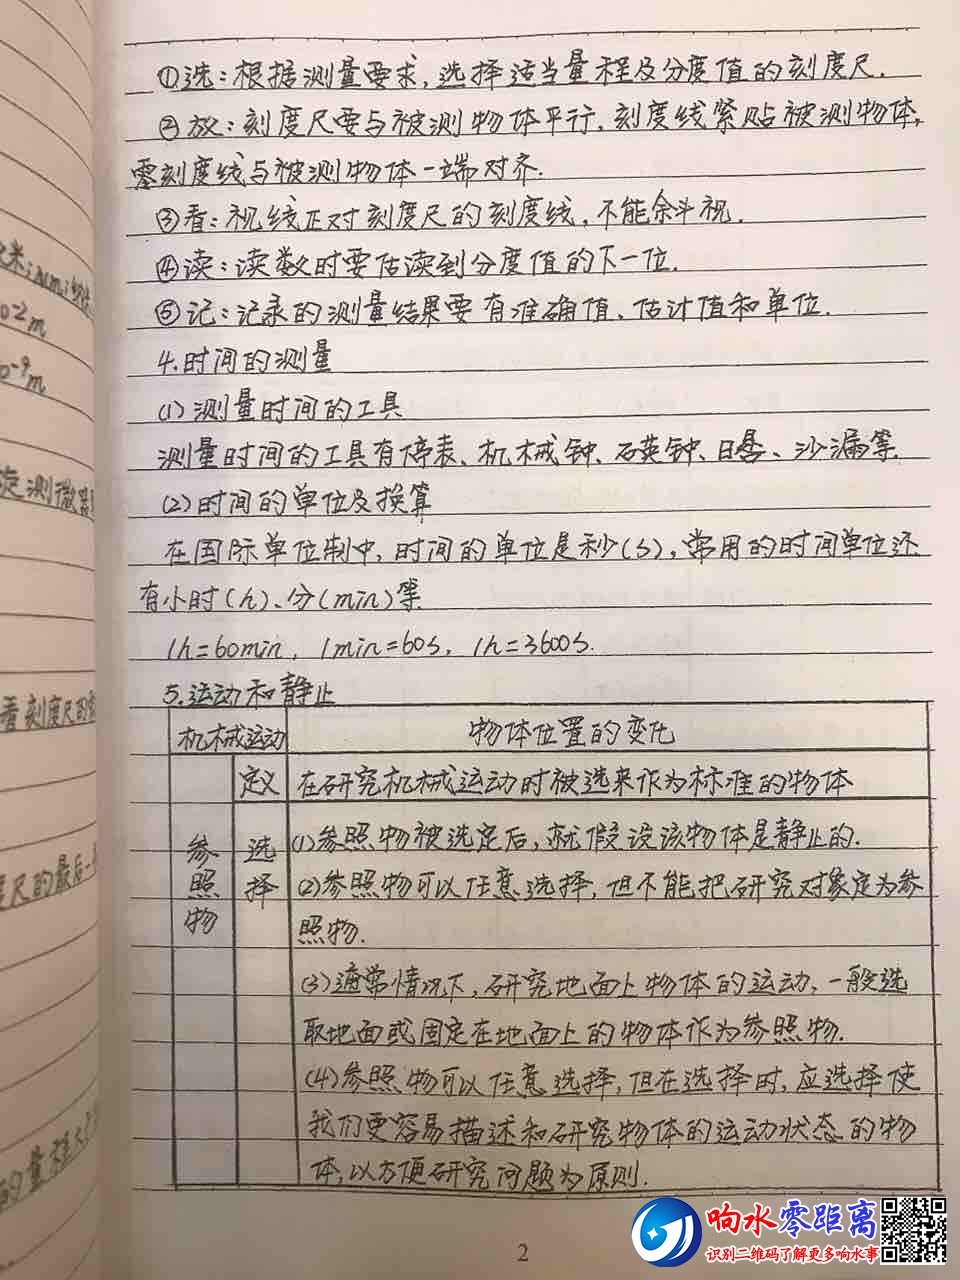 ①选：根据测量要求，选择适当量程及分度值的刻度尺.
②放：刻度尺要与被测物体平行，刻度线紧贴被测物体，
零刻度线与被测物体一端对齐.
③看：视线正对刻度尺的刻度线，不能余斗视.
④读：读数时要估读到分度值的下一位.
⑤记：记录的测量结果要有准确值、估计值和单位.
4.时间的测量
(1)测量时间的工具
测量时间的工具有停表、机械钟、石英钟、日晷、沙漏等.
(2)时间的单位及换算
在国际单位制中，时间的单位是秒(s)，常用的时间单位还
有小时(h)、分(min)等
1h=60min, 1min=60s, 1h=3600s.
5.运动和静止
机械运动 物体位置的变化
定义 在研究机械运动时被选来作为标准的物体
参照物 选择 (1)参照物被选定后，就假设该物体是静止的.
(2)参照物可以任意选择，但不能把研究对象定为参
照物.
(3)通常情况下，研究地面上物体的运动，一般选
取地面或固定在地面上的物体作为参照物.
(4)参照物可以任意选择，但在选择时，应选择使
我们更容易描述和研究物体的运动状态的物
体，以方便研究问题为原则.
2
米：nm：纳米
0-2m
0-9m
旋测微器
看刻度尺的零
度尺的最后一
的量程大
响水零距离
识别二维码了解更多响水事